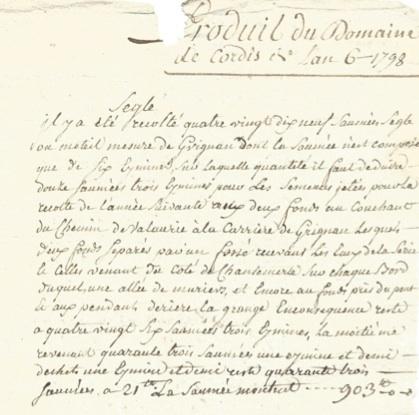 Produit du Domaine
de Cordis &° Lan 6 - 1798
Segle
il y a été recolté quatre vingt dix neuf Saumées Segle
ou moteil mesure de Grignan dont la Saumée n'est composée
que de Six Eymines, Sur laquelle quantité il faut deduire
douze Saumées trois Eymines pour Les Semences jetées pour la
recolte de l'année Suivante aux deux fonds au Couchant
du Chemin de Valaurie à la Carriere de Grignan Lesquels
deux fonds Separés par un fossé recevant Les Eaux de la
le venant du Coté de Chantemerle Sur chaque Bord
duquel une allée de muriers, et Encore au fonds près du pont
aux pendant deriere la grange Enconsequence reste
a quatre vingt Six Saumées trois Eymines, La moitié me
revenant quarante trois Saumées une eymine et demi
dechets une Eymine et demi reste quarante trois
Saumées, a 21 La Saumée montent 903